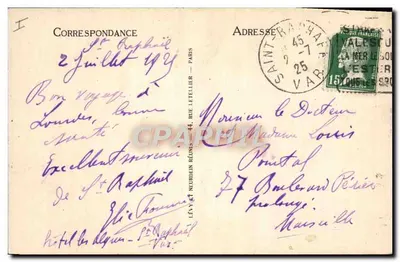 I
CORRESPONDANCE
ADRESSE
St Raphaël
2 Juillet 1925
Bon voyage à
Lourdes, bonne
santé
Excellent souvenir
de St Raphaël
Elie
hôtel les algues - St Raphaël
Var
LÉVY ET NEURDEIN RÉUNIS, 44, RUE LETELLIER - PARIS
CPARAMA
SAINT-RAPHAEL
45
2-7
25
VAR
VALESCURE
LA MER LE GOLF
L'ESTEREL
15c
Monsieur le Docteur
& Madame Louis
77 Boulevard Périer
prolongé
Marseille